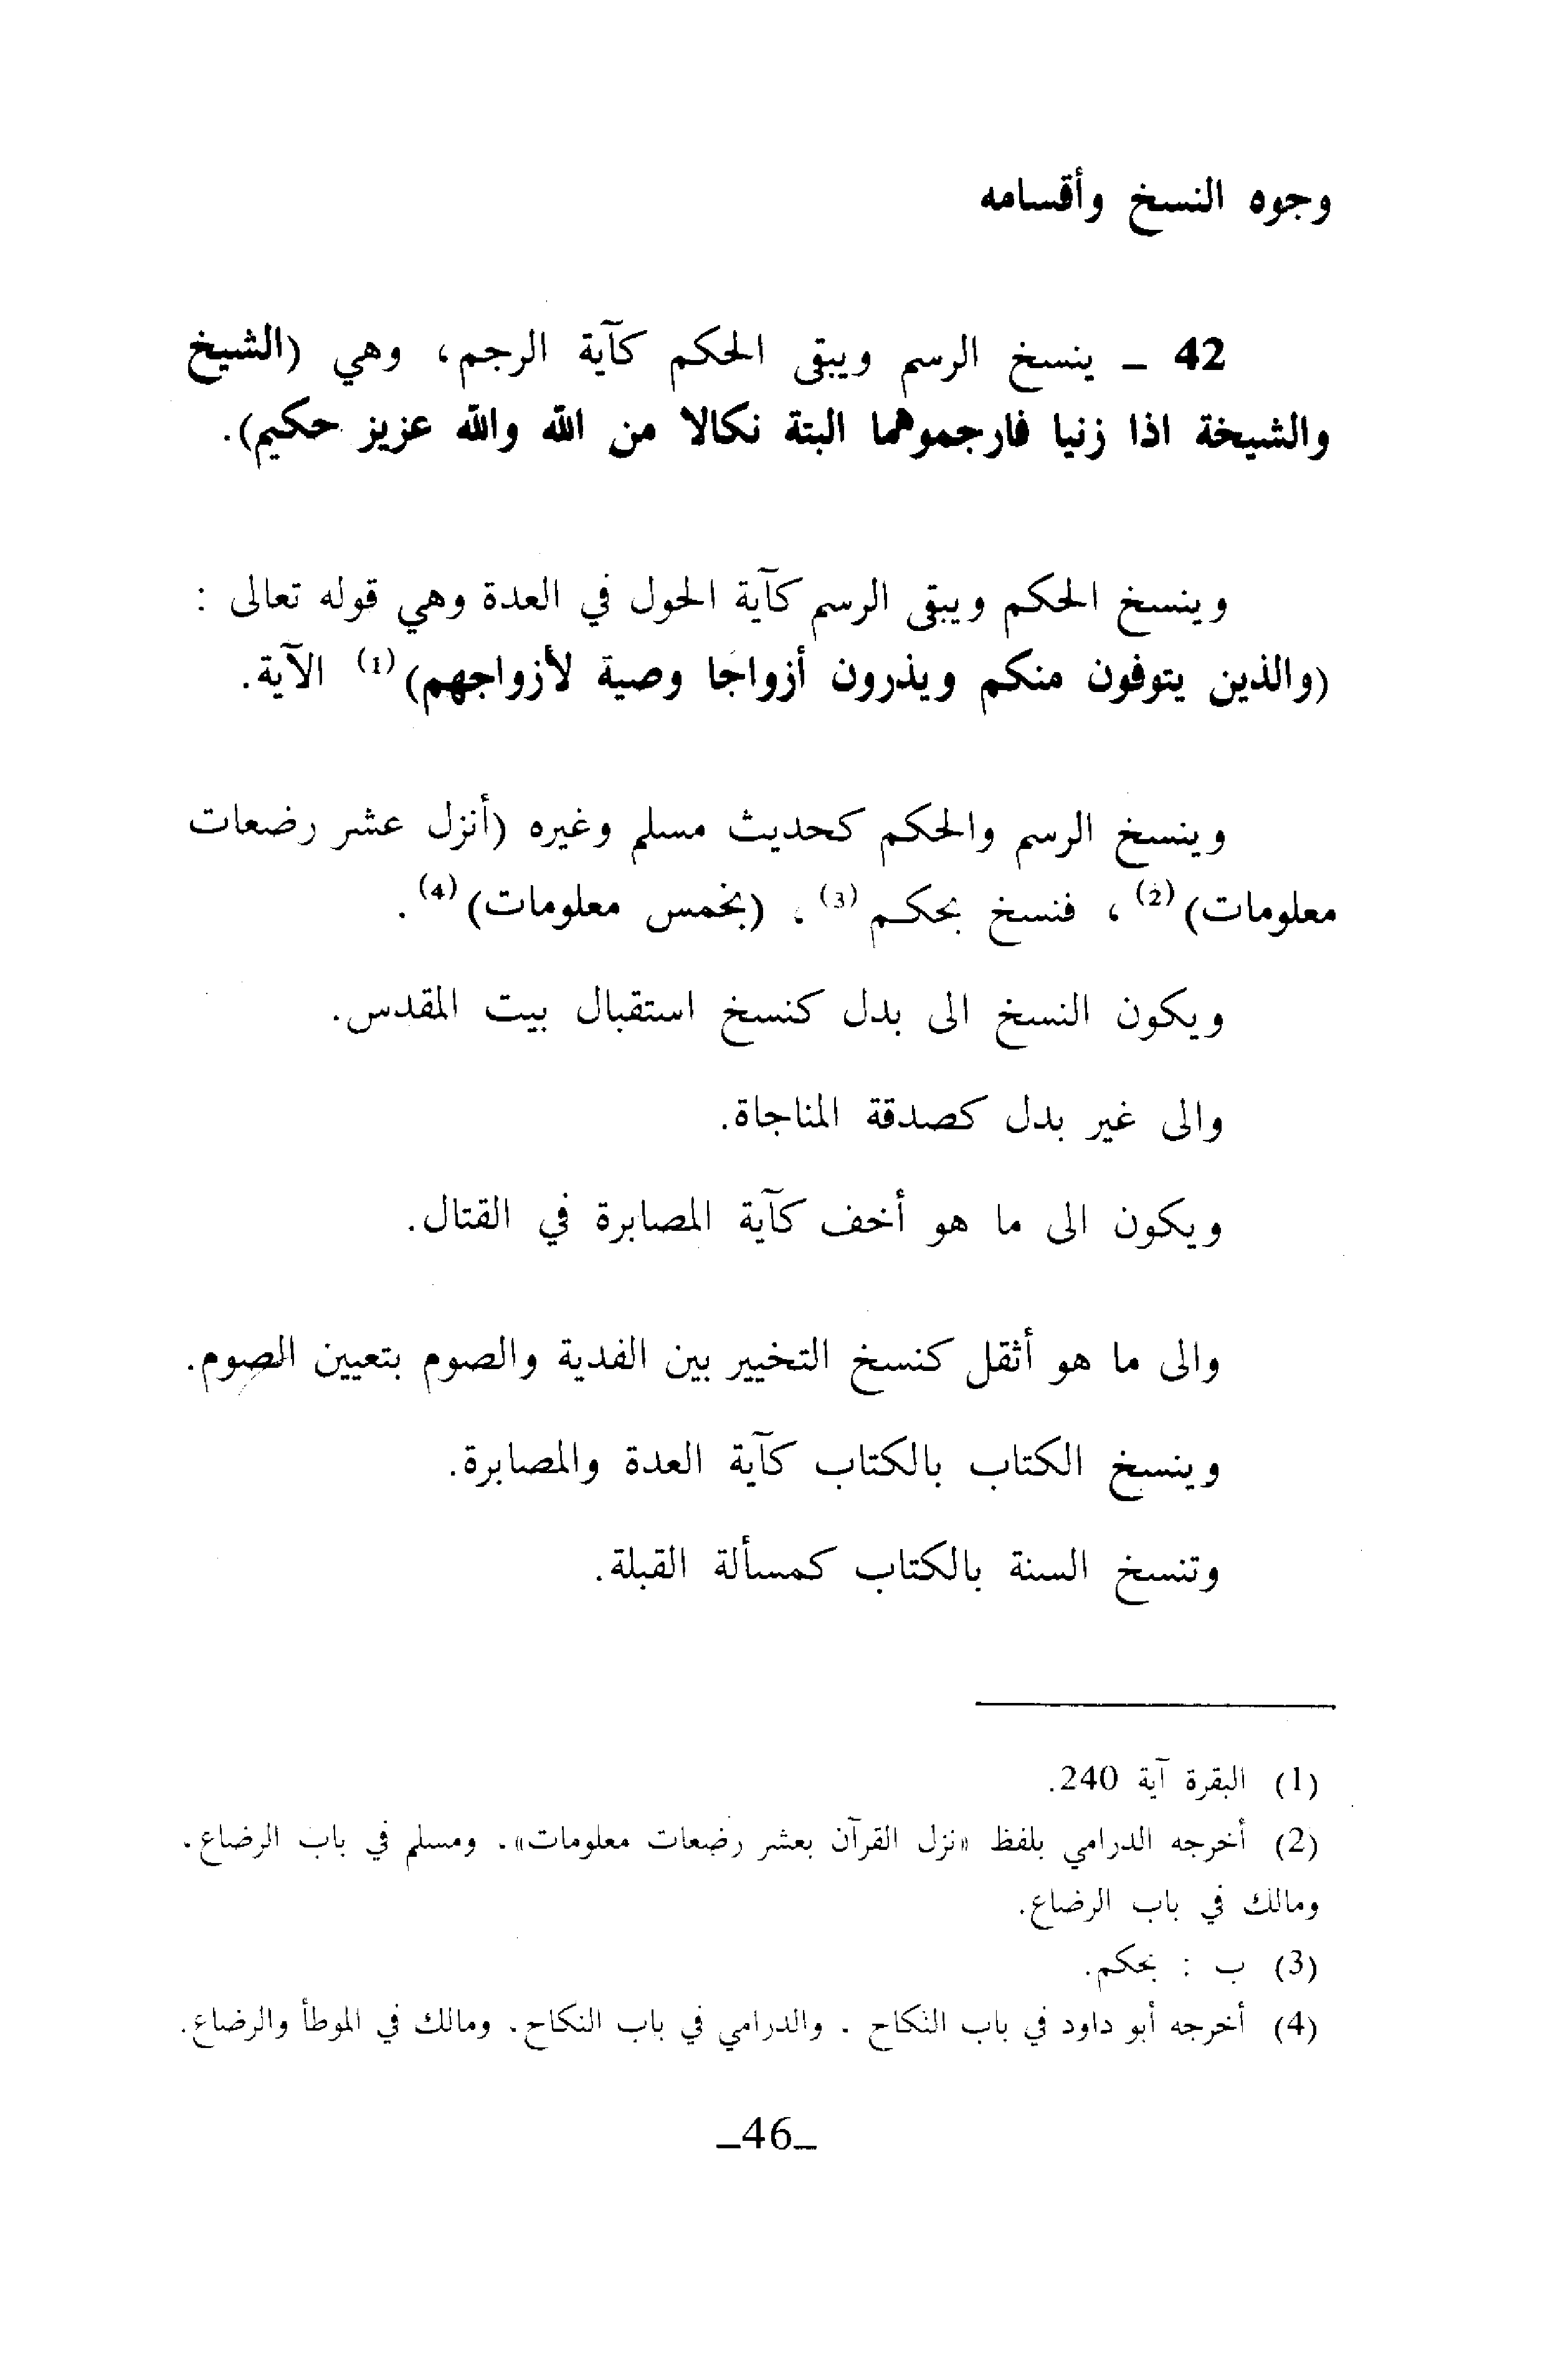 وجوه النسخ وأقسامه
42 _ ينسخ الرسم ويبقى الحكم كآية الرجم، وهي (الشيخ
والشيخة اذا زنيا فارجموهما البتة نكالا من الله والله عزيز حكيم).
وينسخ الحكم ويبقى الرسم كآية الحول في العدة وهي قوله تعالى :
(والذين يتوفون منكم ويذرون أزواجا وصية لأزواجهم) (1) الآية.
وينسخ الرسم والحكم كحديث مسلم وغيره (أنزل عشر رضعات
معلومات) (2) ، فنسخ بحكم (3) ، (بخمس معلومات) (4) .
ويكون النسخ الى بدل كنسخ استقبال بيت المقدس.
والى غير بدل كصدقة المناجاة.
ويكون الى ما هو أخف كآية المصابرة في القتال.
والى ما هو أثقل كنسخ التخيير بين الفدية والصوم بتعيين الصوم.
وينسخ الكتاب بالكتاب كآية العدة والمصابرة.
وتنسخ السنة بالكتاب كمسألة القبلة.
(1) البقرة آية 240.
(2) أخرجه الدرامي بلفظ «نزل القرآن بعشر رضعات معلومات». ومسلم في باب الرضاع.
ومالك في باب الرضاع.
(3) ب : بحكم.
(4) أخرجه أبو داود في باب النكاح . والدرامي في باب النكاح. ومالك في الموطأ والرضاع.
_46_